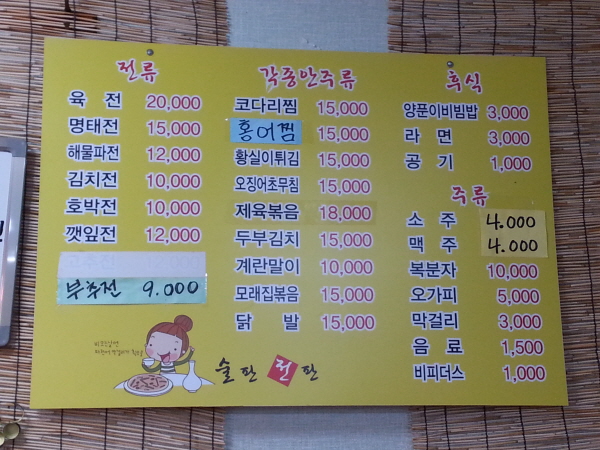 전류
육 전 20,000
명태전 15,000
해물파전 12,000
김치전 10,000
호박전 10,000
깻잎전 12,000
부추전 9.000
각종안주류
코다리찜 15,000
홍어찜 15,000
황실이튀김 15,000
오징어초무침 15,000
제육볶음 18,000
두부김치 15,000
계란말이 10,000
모래집볶음 15,000
닭 발 15,000
후식
양푼이비빔밥 3,000
라 면 3,000
공 기 1,000
주류
소 주 4.000
맥 주 4.000
복분자 10,000
오가피 5,000
막걸리 3,000
음 료 1,500
비피더스 1,000
술판전판